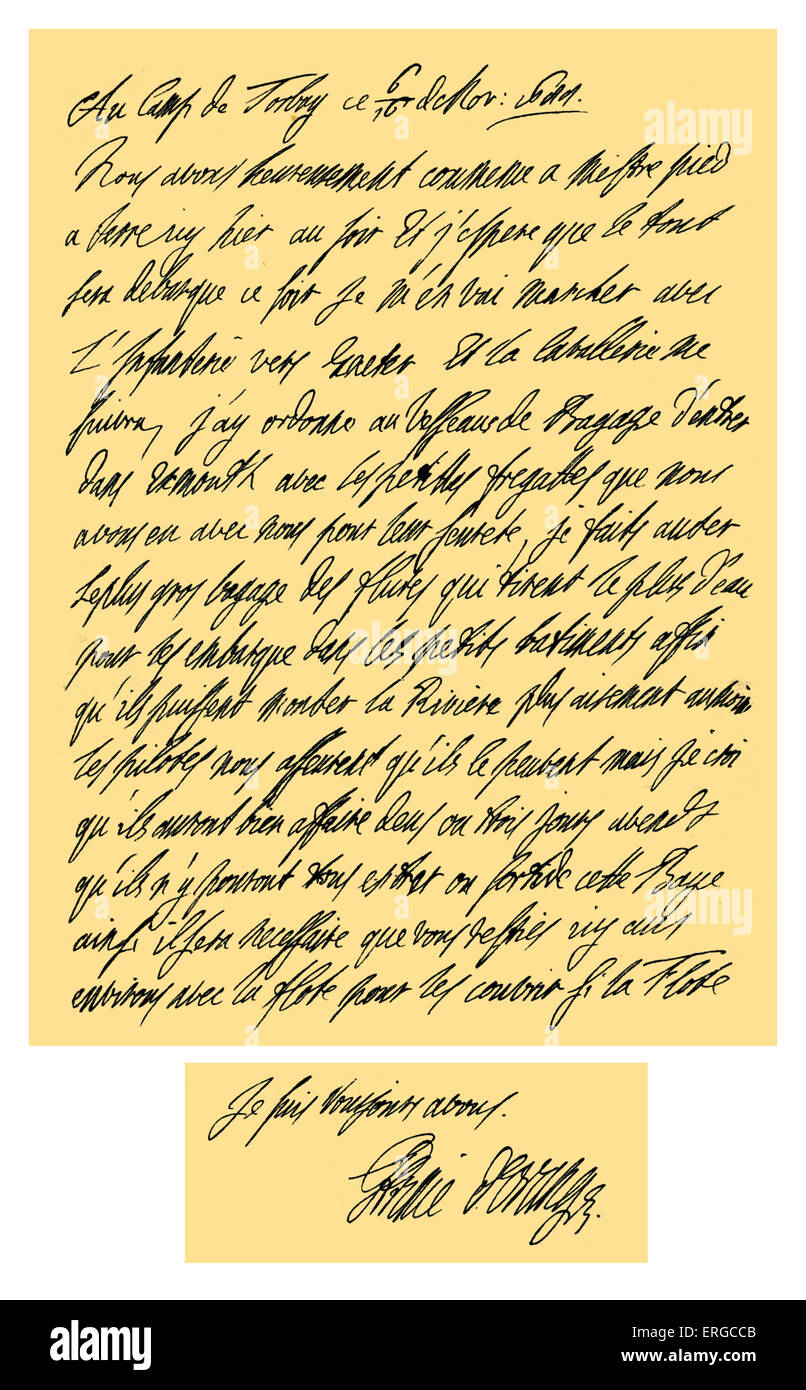 Au Camp de Torbay ce 6/16 de Nov: 1688.
Nous avons heureusement commence a mestre pied
a terre icy hier au soir Et j'espere que le tout
sera debarque ce soir Je m'en vai marcher avec
L'Infanterie vers Exeter Et la Cavallerie me
suivra, j'ay ordonne au Vesseaus de Bagage d'entrer
dans Exmouth avec les petittes fregattes que nous
avons eu avec nous pour leur seureté, je faits auter
le plus gros bagage des flutes qui tirent le plus d'eau
pour les embarque dans les petits batiments affin
qu'ils puissent monter la Riviere plus aisement au moin
les pilotes nous asseurent qu'ils le peuvent mais je croi
qu'ils auront bien affaire deus ou trois jours avendt
qu'ils n'y pouront tous entrer ou sortir de cette Baye
ainsi il sera necessaire que vous resties icy aus
environs avec la flote pour les couvrir si la Flote
Je suis tousjours a vous.
Prince d'Orange.
alamy
alamy
alamy
a
a
a
alamy
Image ID: ERGCCB
www.alamy.com